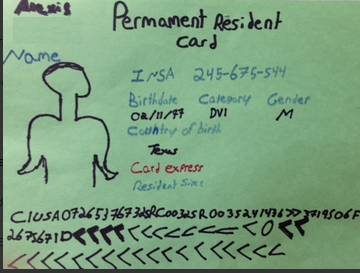 Alexis
Permament Resident
Card
Name
INSA 245-675-544
Birthdate Category Gender
02/11/97 DV1 M
Country of birth
Texas
Card express
Resident Since
C1USA07265376732SRC0032SR003524143G>>3719506F
2675671D<<<<<<<<<<<<O<<
<<<<<<<<<<<<<<<<<<